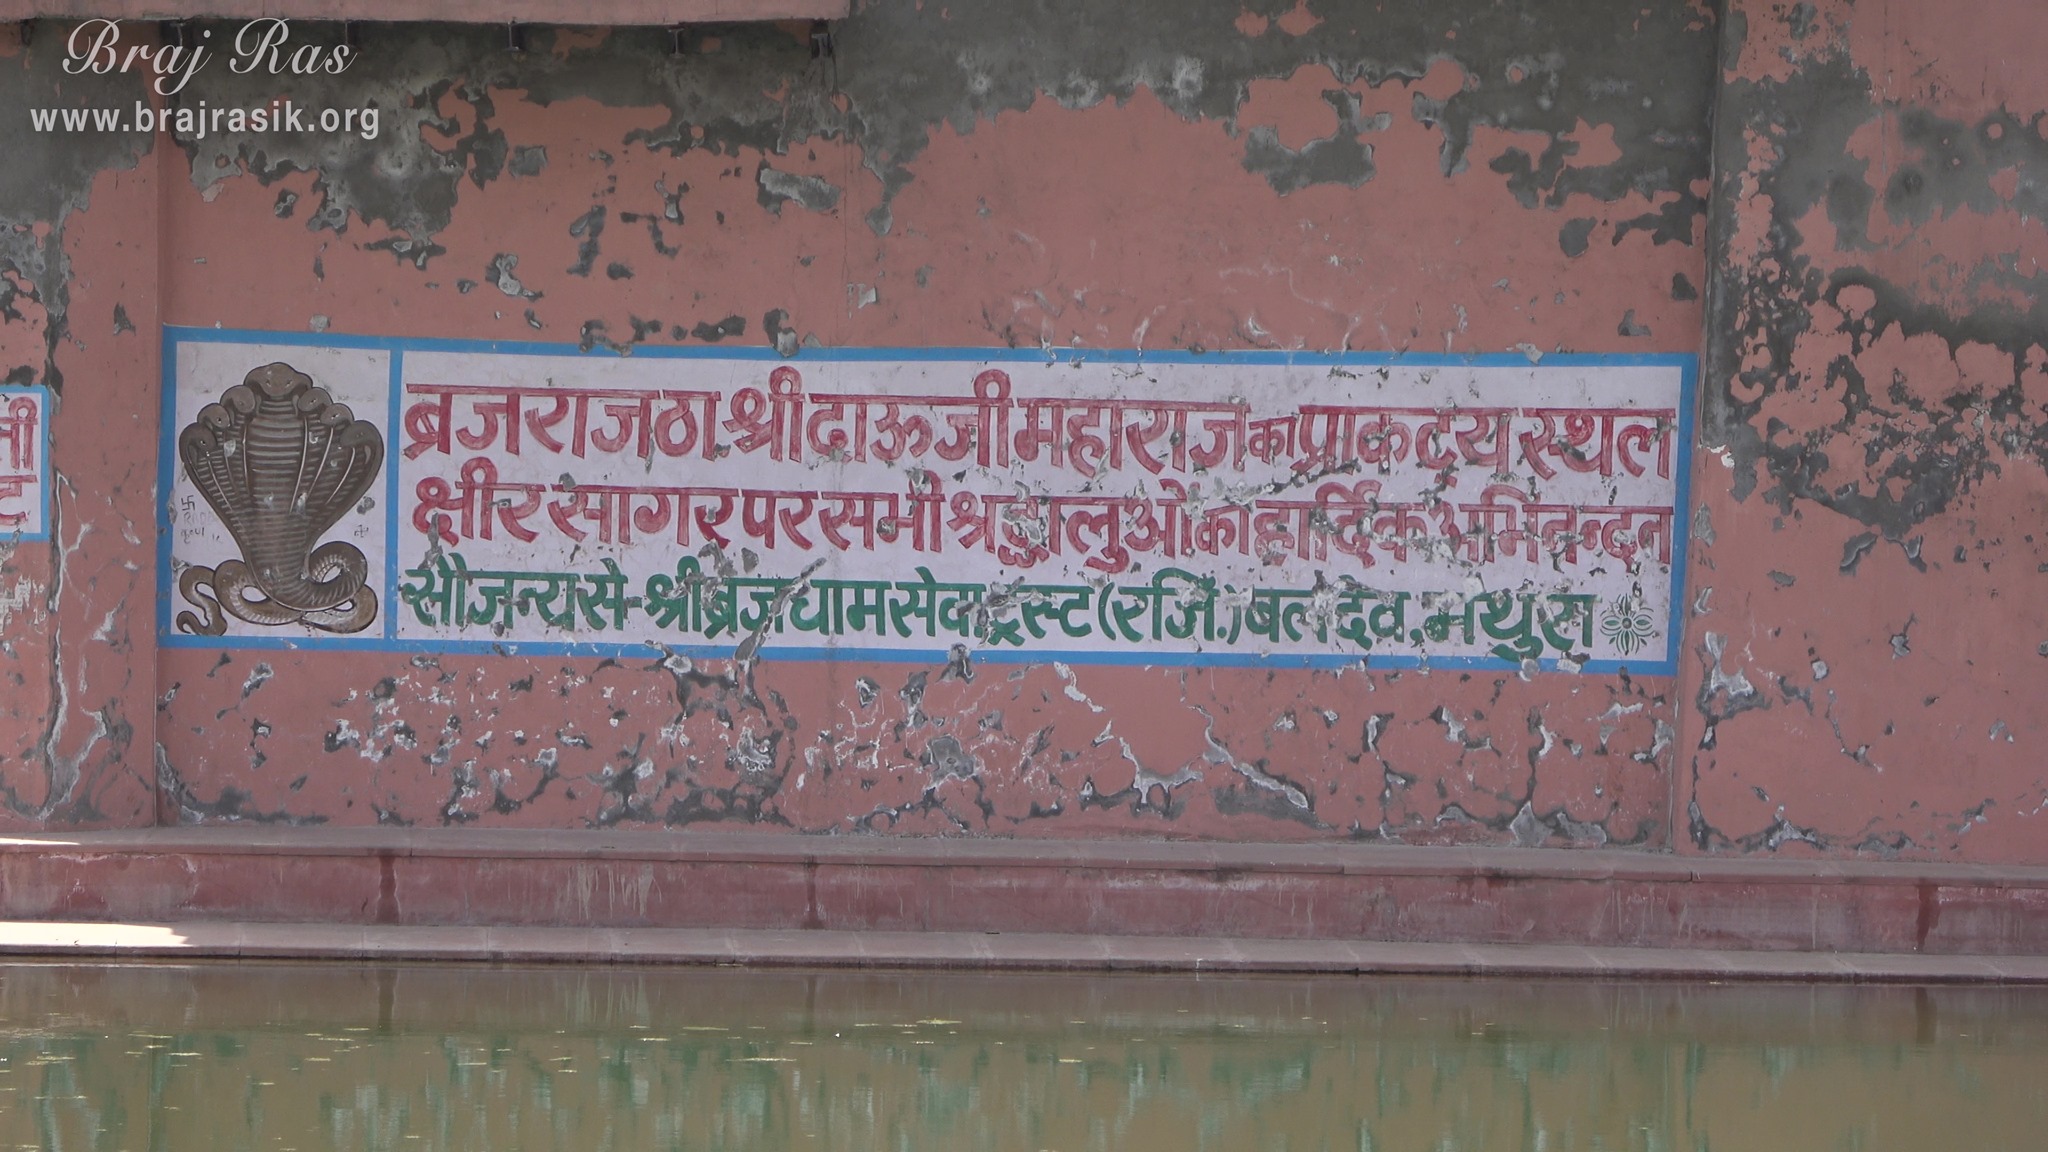 Braj Ras
www.brajrasik.org
ब्रजराज ठा श्री दाऊजी महाराज का प्राकट्य स्थल
क्षीर सागर पर सभी श्रद्धालुओं का हार्दिक अभिनन्दन
सौजन्य से - श्री ब्रजधाम सेवा ट्रस्ट (रजिं.) बलदेव, मथुरा